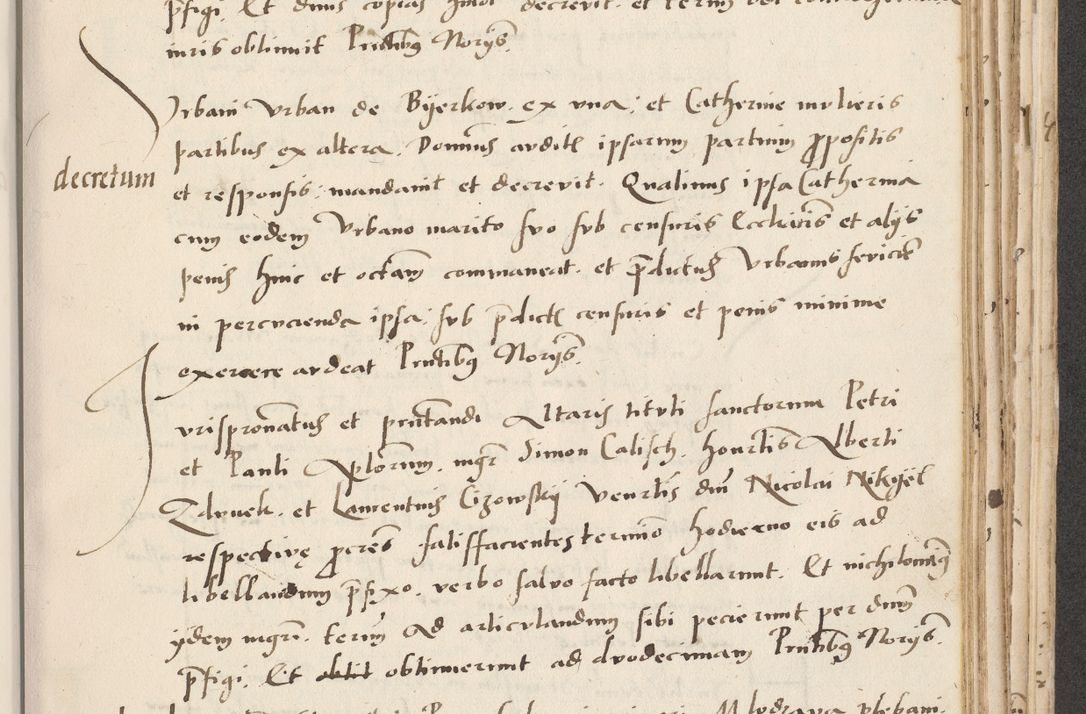 p̄figi. Et dnus copias decrevit. et
iuris obtinuit Pn̄tibus Norijs.
Urbani Urban de Byerkow. ex una; et Catherine mulieris
partibus ex altera. Dominus auditis ipsarum partium propositis
et responsis; mandavit et decrevit. Quatinus ipsa Catherina
decretum
cum eodem Urbano marito suo sub censuris Ecclicis et alijs
penis hinc et octam commaneat. et p̄dictus Urbanus sevicie
in percucienda ipsa; sub p̄dictis censuris et penis minime
exercere audeat Pn̄tibus Norijs.
Jurispronatus et pn̄tandi Altaris tituli sanctorum Petri
et Pauli Aplorum. mgr̄ Simon Calisch. honrlis Alberti
Zdunek. et Laurentius Cizowskij Venrlis dni Nicolai Nikyel
respective pcres satisfacientes termino hodierno eis ad
libellandum p̄fixo. verbo salvo facto libellarunt. Et nichilominus
ydem mgri. termin ad articulandum sibi pecierunt per dnum
p̄figi. Et obtinuerunt ad duodecimam Pn̄tibus Norijs.
plebani